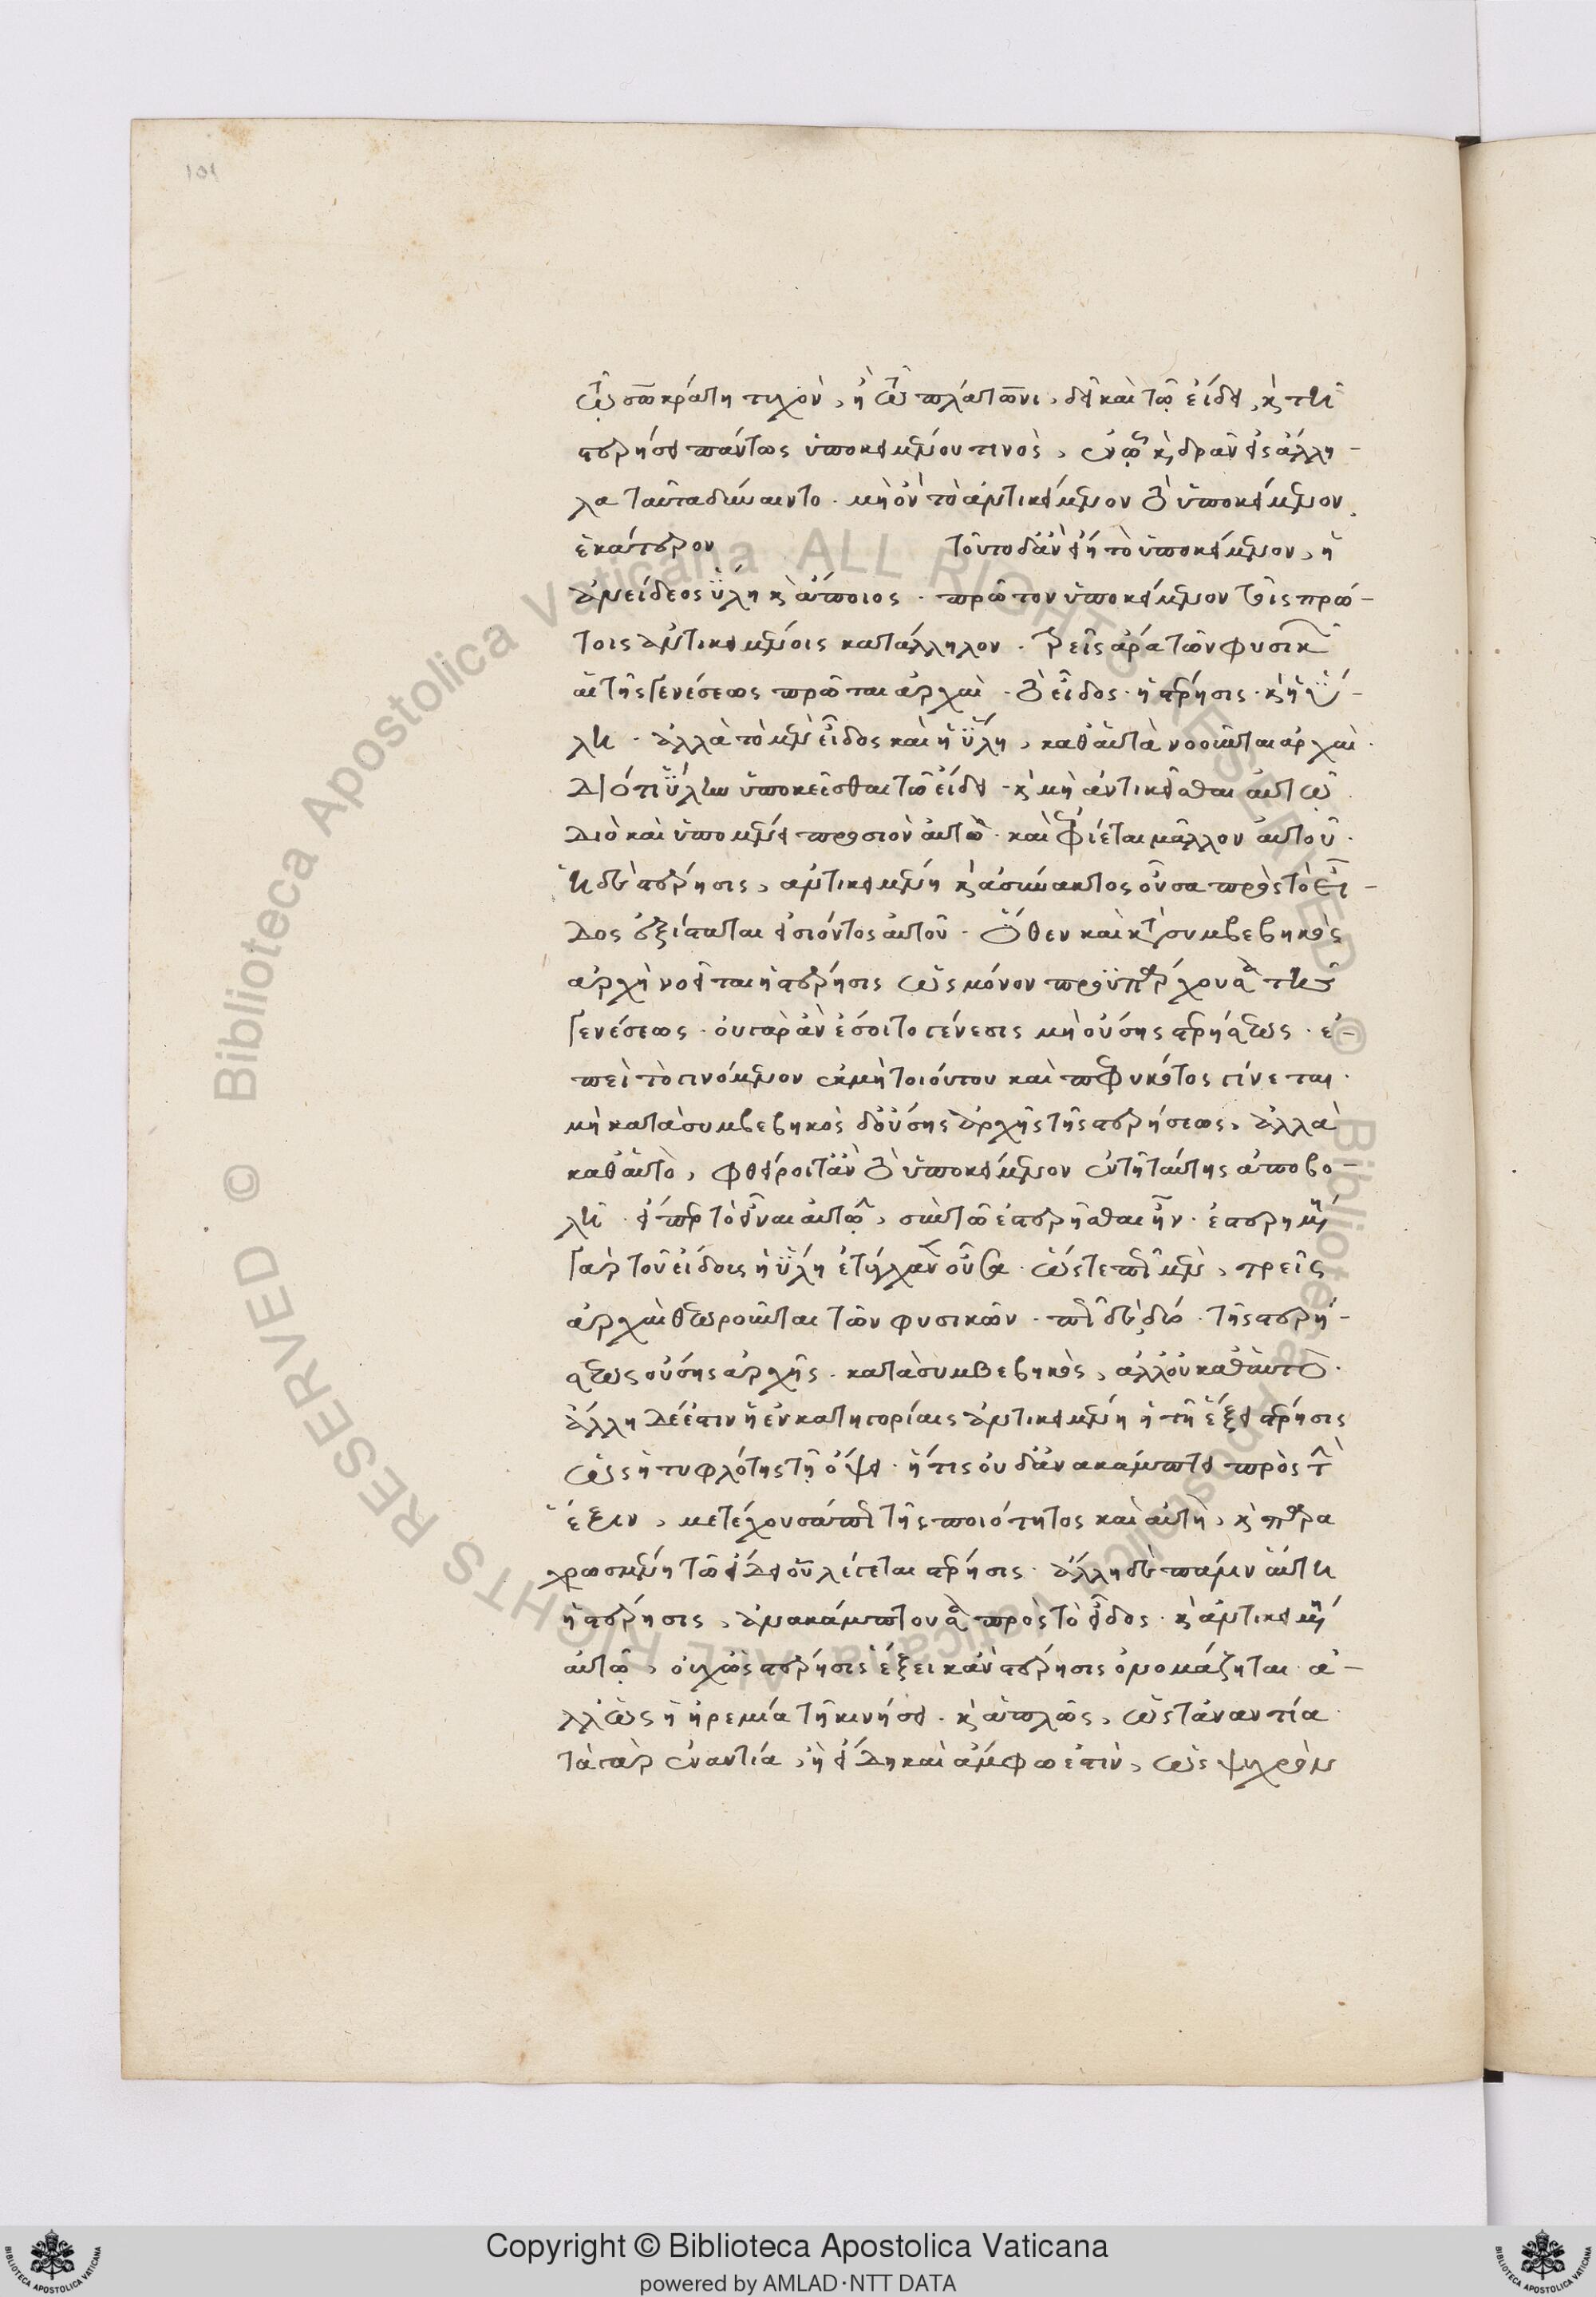 101
τῷ σωκράτη τυχὸν, ἢ τῷ πλάτωνι, δεῖ καὶ τῷ εἴδει, κ τῆ
στερήσει πάντως ὑποκειμένου τινὸς, ἐν ᾧ κ δρᾶν εἰς ἄλλη-
λα ταῦτα δύναιντο. μὴ ὂν τὸ ἀντικείμενον τὸ ὑποκείμενον
ἑκάτερον τοῦτο δ' ἂν εἴη τὸ ὑποκείμενον, ἡ
ἀνείδεος ὕλη κ ἄποιος. πρῶτον ὑποκείμενον τοῖς πρώ-
τοις ἀντικειμένοις κατάλληλον. τρεῖς ἄρα τῶν φυσικ
αἱ τῆς γενέσεως πρῶται ἀρχαὶ. τὸ εἶδος. ἡ στέρησις. κ ἡ ὕ-
λη. ἀλλὰ τὸ μὲν εἶδος καὶ ἡ ὕλη, καθ' αὑτὰ νοοῦνται ἀρχαὶ.
Διότι ὕλην ὑποκεῖσθαι τῷ εἴδει. κ μὴ ἀντικεῖσθαι αὐτῷ.
Διὸ καὶ ὑπομένει προσιὸν αὐτῷ. καὶ ἐφίεται μᾶλλον αὐτοῦ.
ἡ δὲ στέρησις, ἀντικειμένη κ ἀσύνακτος οὖσα πρὸς τὸ εἶ-
δος ἐξίσταται εἰσιόντος αὐτοῦ. Ὅθεν καὶ κατὰ συμβεβηκὸς
ἀρχὴ νοεῖται ἡ στέρησις ὡς μόνον προϋπάρχουσα τῆς
γενέσεως. οὐ γὰρ ἂν ἐσοιτο γένεσις μὴ οὔσης στερήσεως. ἐ-
πεὶ τὸ γινόμενον ἐκ μὴ τοιούτου καὶ πεφυκότος γίνεται.
μὴ κατὰ συμβεβηκὸς δ' οὔσης ἀρχῆς τῆς στερήσεως, ἀλλὰ
καθ' αὑτὸ, φθείροιτ' ἂν τὸ ὑποκείμενον ἐν τῇ ταύτης ἀποβο-
λῆ. εἴπερ τὸ εἶναι αὐτῷ, σὺν τῷ ἐστερῆσθαι ἦν. ἐστερημένη
γὰρ τοῦ εἴδους ἡ ὕλη ἐτύγχανεν οὖσα. ὥστε πῆ μὲν, τρεῖς
ἀρχαὶ θεωροῦνται τῶν φυσικῶν. πῆ δὲ, δύο. τῆς στερή-
σεως οὔσης ἀρχῆς. κατὰ συμβεβηκὸς, ἀλλ' οὐ καθ' αὑτὸ.
ἄλλη δέ ἐστιν ἡ ἐν κατηγορίαις ἀντικειμένη ἡ τῇ ἕξει στέρησις
ὡς ἡ τυφλότης τῇ ὄψει. ἥτις οὐδ' ἀνακάμπτει πρὸς τὴν
ἕξιν, μετέχουσά πη τῆς ποιότητος καὶ αὐτὴ, κ παρα
χρωσμένη τῷ εἴδει οὗ λέγεται στέρησις. ἄλλη δὲ πάλιν αὕτη
ἡ στέρησις, ἀνακάμπτουσα πρὸς τὸ εἶδος. κ ἀντικειμένη
αὐτῷ, οὐχ ὡς στέρησις ἕξει κἂν στέρησις ὀνομάζηται ἀ-
λλ' ὡς ἡ ἠρεμία τῇ κινήσει. κ ἁπλῶς, ὡς τἀναντία
τὰ γὰρ ἐναντία, ἢ εἴδη καὶ ἄμφω ἐστὶν, ὡς ψυχρὸν
Copyright © Biblioteca Apostolica Vaticana
powered by AMLAD·NTT DATA
Biblioteca Apostolica Vaticana ALL RIGHTS RESERVED ©